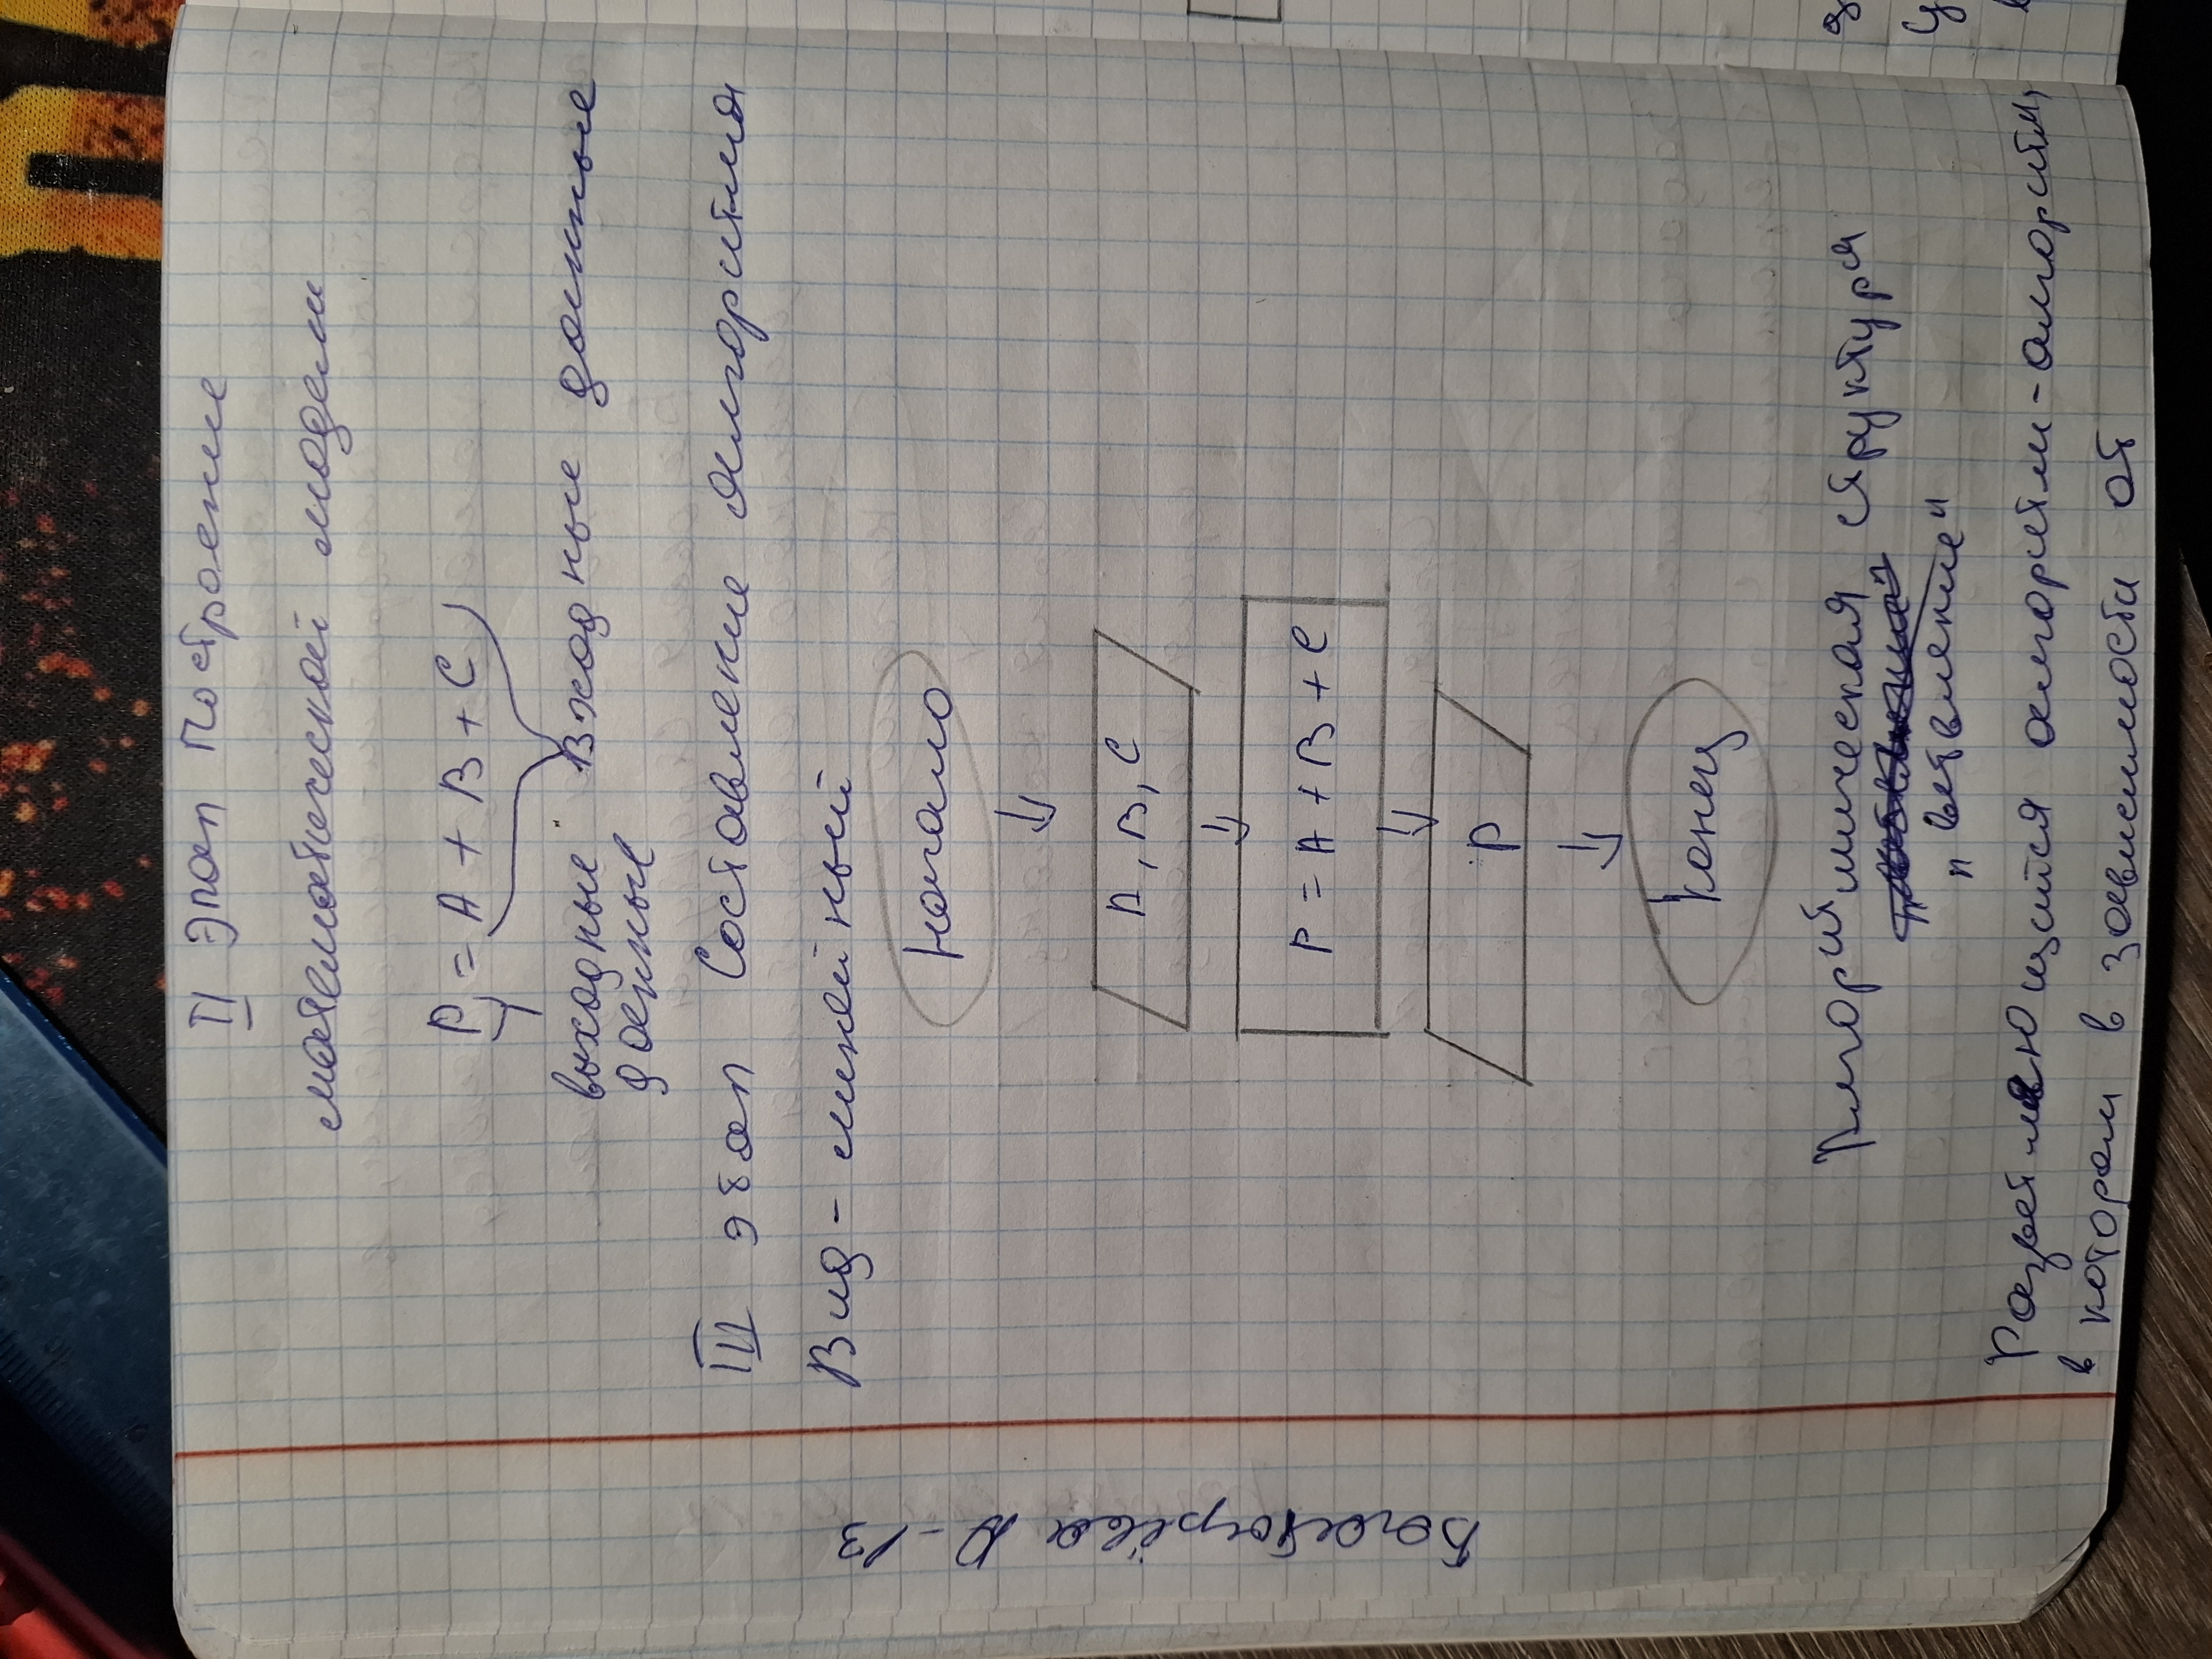 II Этап Построение
математической модели
P = A + B + C
выходные Входные данные
данные
III этап Составление Алгоритма
Вид - линейный
Начало
A, B, C
P = A + B + C
P
Конец
Алгоритмическая структура
"ветвление"
Разветвляющийся алгоритм - алгоритм,
в котором в зависимости от